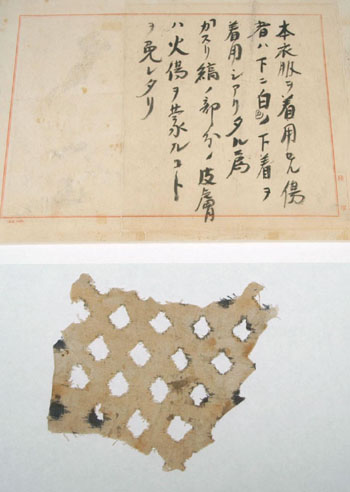 本衣服ヲ着用セル傷
者ハ下ニ白色ノ下着ヲ
着用シアリタル為
カスリ縞ノ部分ノ皮膚
ハ火傷ヲ蒙ルコト
ヲ免レタリ